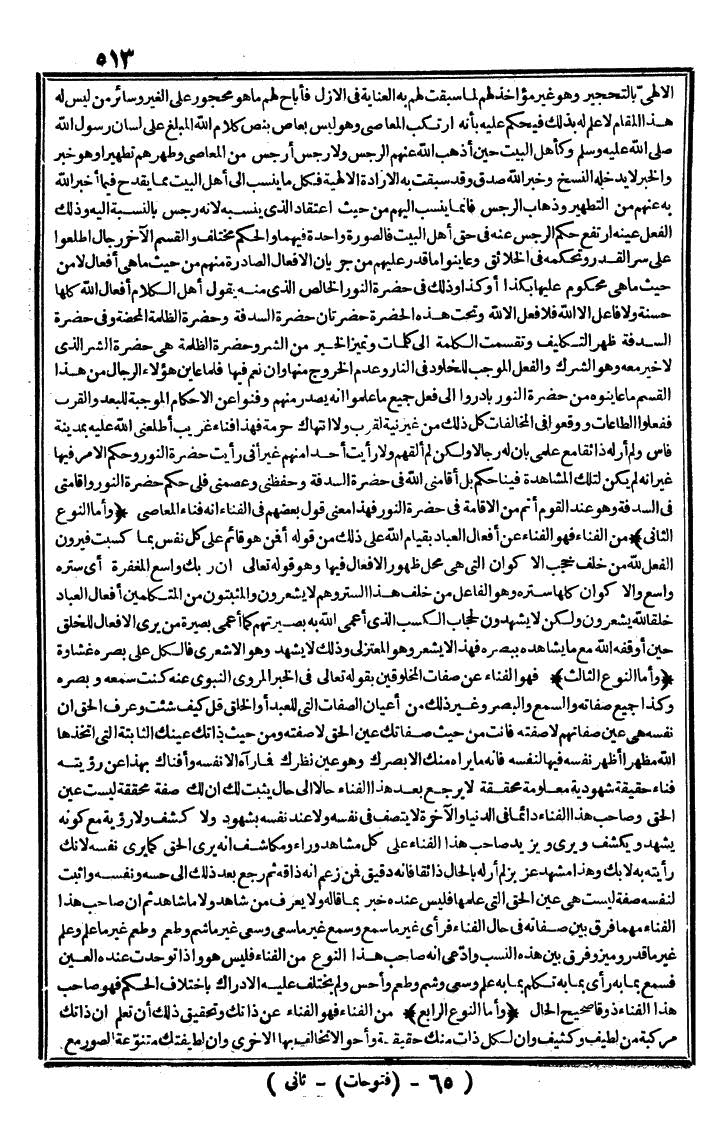 ٥١٣
الالهى بالتحجير وهو غير مؤاخذ لهم لما سبقت لهم به العناية فى الازل فأباح لهم ما هو محجور على الغير وسائر من ليس له
هذا المقام لا علم له بذلك فيحكم عليه بأنه ارتكب المعاصى وهو ليس بعاص بنص كلام الله المبلغ على لسان رسول الله
صلى الله عليه وسلم وكأهل البيت حين أذهب الله عنهم الرجس ولا رجس أرجس من المعاصى وطهرهم تطهيرا وهو خبر
والخبر لا يدخله النسخ وخبر الله صدق وقد سبقت به الارادة الالهية فكل ما ينسب الى أهل البيت مما يقدح فيما أخبر الله
به عنهم من التطهير وذهاب الرجس فانما ينسب اليهم من حيث اعتقاد الذى ينسبه لانه رجس بالنسبة اليه وذلك
الفعل عينه ارتفع حكم الرجس عنه فى حق أهل البيت فالصورة واحدة فيهما والحكم مختلف والقسم الآخر رجال اطلعوا
على سر القدر وتحكمه فى الخلائق وعاينوا ما قدر عليهم من جريان الافعال الصادرة منهم من حيث ما هى أفعال لا من
حيث ما هى محكوم عليها بكذا أو كذا وذلك فى حضرة النور الخالص الذى منه يقول أهل الكلام أفعال الله كلها
حسنة ولا فاعل الا الله فلا فعل الا لله وتحت هذه الحضرة حضرتان حضرة السدفة وحضرة الظلمة المحضة وفى حضرة
السدفة ظهر التكليف وتقسمت الكلمة الى كلمات وتميز الخير من الشر وحضرة الظلمة هى حضرة الشر الذى
لا خير معه وهو الشرك والفعل الموجب للخلود فى النار وعدم الخروج منها وان نعم فيها فلما عاين هؤلاء الرجال من هذا
القسم ما عاينوه من حضرة النور بادروا الى فعل جميع ما علموا انه يصدر منهم وفنوا عن الاحكام الموجبة للبعد والقرب
ففعلوا الطاعات ووقعوا فى المخالفات كل ذلك من غير نية لقرب ولا انتهاك حرمة فهذا فناء غريب أطلعنى الله عليه بمدينة
فاس ولم أر له ذائقا مع علمى بان له رجالا ولكن لم ألقهم ولا رأيت أحدا منهم غير أنى رأيت حضرة النور وحكم الامر فيها
غير انه لم يكن لتلك المشاهدة فينا حكم بل أقامنى الله فى حضرة السدفة وحفظنى وعصمنى فلى حكم حضرة النور واقامتى
فى السدفة وهو عند القوم أتم من الاقامة فى حضرة النور فهذا معنى قول بعضهم فى الفناء انه فناء المعاصى ﴿وأما النوع
الثانى﴾ من الفناء فهو الفناء عن أفعال العباد بقيام الله على ذلك من قوله أفمن هو قائم على كل نفس بما كسبت فيرون
الفعل لله من خلف حجب الاكوان التى هى محل ظهور الافعال فيها وهو قوله تعالى ان ربك واسع المغفرة أى ستره
واسع والا كوان كلها ستره وهو الفاعل من خلف هذا الستر وهم لا يشعرون والمثبتون من المتكلمين أفعال العباد
خلقا لله يشعرون ولكن لا يشهدون لحجاب الكسب الذى أعمى الله به بصيرتهم كما أعمى بصيرة من يرى الافعال للخلق
حين أوقفه الله مع ما يشاهده ببصره فهذا لا يشعر وهو المعتزلى وذلك لا يشهد وهو الاشعرى فالكل على بصره غشاوة
﴿وأما النوع الثالث﴾ فهو الفناء عن صفات المخلوقين بقوله تعالى فى الخبر المروى النبوى عنه كنت سمعه وبصره
وكذا جميع صفاته والسمع والبصر وغير ذلك من أعيان الصفات التى للعبد أو الخلق قل كيف شئت وعرف الحق ان
نفسه هى عين صفاتهم لا صفته فانت من حيث صفاتك عين الحق لا صفته ومن حيث ذاتك عينك الثابتة التى اتخذها
الله مظهرا أظهر نفسه فيها لنفسه فانه ما يراه منك الا بصرك وهو عين نظرك فما رآه الا نفسه وأفناك بهذا عن رؤيته
فناء حقيقة شهودية معلومة محققة لا يرجع بعد هذا الفناء حالا الى حال يثبت لك ان لك صفة محققة ليست عين
الحق وصاحب هذا الفناء دائما فى الدنيا والآخرة لا يتصف فى نفسه ولا عند نفسه بشهود ولا كشف ولا رؤية مع كونه
يشهد ويكشف ويرى ويزيد صاحب هذا الفناء على كل مشاهد وراء ومكاشف انه يرى الحق كما يرى نفسه لانك
رأيته به لا بك وهذا مشهد عزيز لم أر له بالحال ذائقا فانه دقيق فمن زعم انه ذاقه ثم رجع بعد ذلك الى حسه ونفسه واثبت
لنفسه صفة ليست هى عين الحق التى علمها فليس عنده خبر بما قاله ولا يعرف من شاهد ولا ما شاهد ثم ان صاحب هذا
الفناء مهما فرق بين صفاته فى حال الفناء فرأى غير ما سمع وسمع غير ما سعى وسعى غير ما شم وطعم وطعم غير ما علم وعلم
غير ما قدر وميز وفرق بين هذه النسب وادّعى انه صاحب هذا النوع من الفناء فليس هو واذا توحدت عنده العين
فسمع بما به رأى بما به تكلم بما به علم وسعى وشم وطعم وأحس ولم يختلف عليه الادراك باختلاف الحكم فهو صاحب
هذا الفناء ذوقا صحيح الحال ﴿وأما النوع الرابع﴾ من الفناء فهو الفناء عن ذاتك وتحقيق ذلك أن تعلم ان ذاتك
مركبة من لطيف وكثيف وان لكل ذات منك حقيقة وأحوالا تخالف بها الاخرى وان لطيفتك متنوّعة الصور مع
( ٦٥ - (فتوحات) - ثانى )